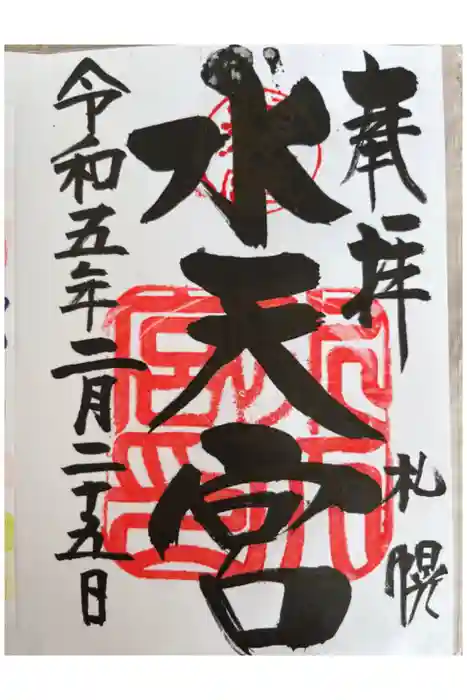 奉拝
札幌
水天宮
令和五年二月二十五日